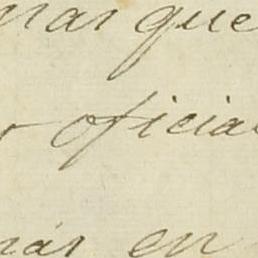 mas que
r oficial
más en